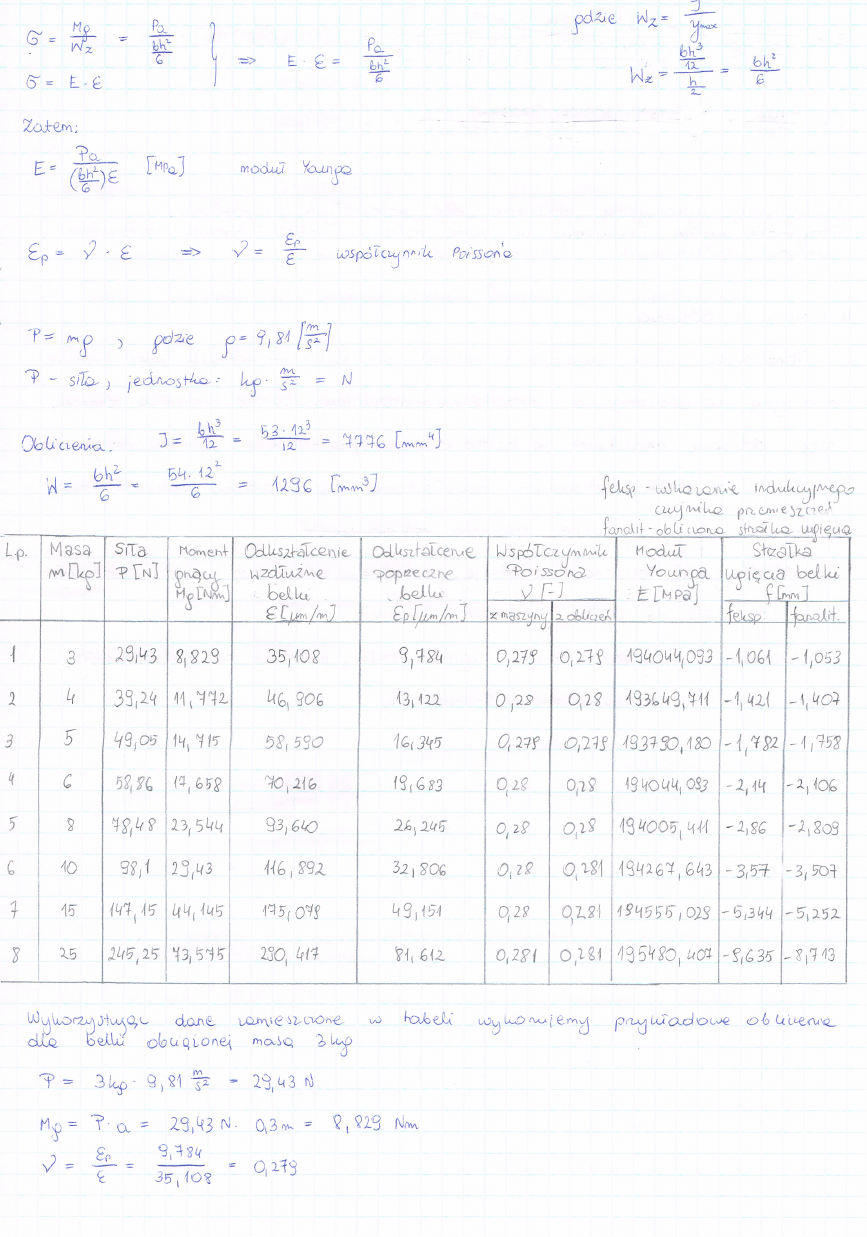 σ = Mg/Wz = Pa/(bh²/6)
σ = E · ε
⇒ E · ε = Pa/(bh²/6)
gdzie Wz = J/ymax
Wz = (bh³/12)/(h/2) = bh²/6
Zatem:
E = Pa/((bh²/6)ε) [MPa] moduł Younga
εp = ν · ε ⇒ ν = εp/ε współczynnik Poissona
P = mg , gdzie g = 9,81 [m/s²]
P - siła, jednostka: kg · m/s² = N
Obliczenia: J = bh³/12 = 53 · 12³/12 = 7776 [mm⁴]
W = bh²/6 = 54 · 12²/6 = 1296 [mm³]
feksp - wskazanie indukcyjnego
czujnika przemieszczeń
fanalit - obliczona strzałka ugięcia
Lp. | Masa m [kg] | Siła P [N] | Moment gnący Mg [Nm] | Odkształcenie wzdłużne belki ε [μm/m] | Odkształcenie poprzeczne belki εp [μm/m] | Współczynnik Poissona ν [-] z maszyny | z obliczeń | Moduł Younga E [MPa] | Strzałka ugięcia belki f [mm] feksp. | fanalit.
1 | 3 | 29,43 | 8,829 | 35,108 | 9,784 | 0,279 | 0,279 | 194044,093 | -1,061 | -1,053
2 | 4 | 39,24 | 11,772 | 46,906 | 13,122 | 0,28 | 0,28 | 193649,711 | -1,421 | -1,407
3 | 5 | 49,05 | 14,715 | 58,590 | 16,345 | 0,279 | 0,279 | 193790,180 | -1,782 | -1,758
4 | 6 | 58,86 | 17,658 | 70,216 | 19,683 | 0,28 | 0,28 | 194044,093 | -2,14 | -2,106
5 | 8 | 78,48 | 23,544 | 93,640 | 26,245 | 0,28 | 0,28 | 194005,411 | -2,86 | -2,809
6 | 10 | 98,1 | 29,43 | 116,892 | 32,806 | 0,28 | 0,281 | 194267,643 | -3,57 | -3,507
7 | 15 | 147,15 | 44,145 | 175,079 | 49,151 | 0,28 | 0,281 | 194555,029 | -5,344 | -5,252
8 | 25 | 245,25 | 73,575 | 290,417 | 81,612 | 0,281 | 0,281 | 195480,407 | -9,635 | -8,713
Wykorzystując dane zamieszczone w tabeli wykonujemy przykładowe obliczenia
dla belki obciążonej masą 3 kg
P = 3kg · 9,81 m/s² = 29,43 N
Mg = P · a = 29,43 N · 0,3m = 8,829 Nm
ν = εp/ε = 9,784/35,108 = 0,279